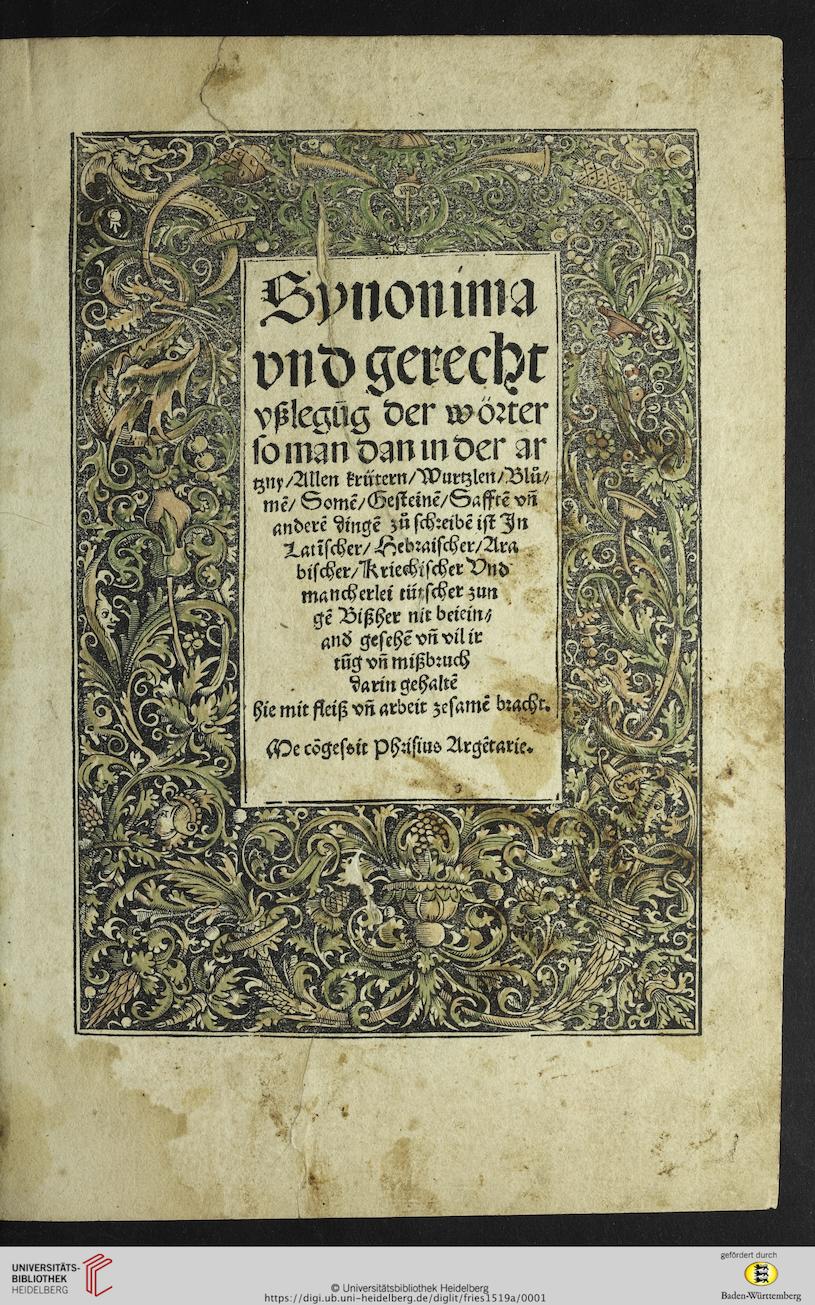 Synonima
vnd gerecht
vßlegūg der wörter
so man dan in der ar
tzny/Allen krütern/Wurtzlen/Blů⸗
mē/ Somē/Gesteinē/Safftē vn̄
anderē dingē zů schreibē ist Jn
Latīscher/ Hebraischer/Ara
bischer/Kriechischer Vnd
mancherlei tütscher zun
gē Bißher nit beiein⸗
and gesehē vn̄ vil ir
tūg vn̄ mißbruch
darin gehaltē
hie mit fleiß vn̄ arbeit zesamē bracht.
Me cōgessit Phrisius Argētarie.
UNIVERSITÄTS-
BIBLIOTHEK
HEIDELBERG
© Universitätsbibliothek Heidelberg
https://digi.ub.uni-heidelberg.de/diglit/fries1519a/0001
gefördert durch
Baden-Württemberg